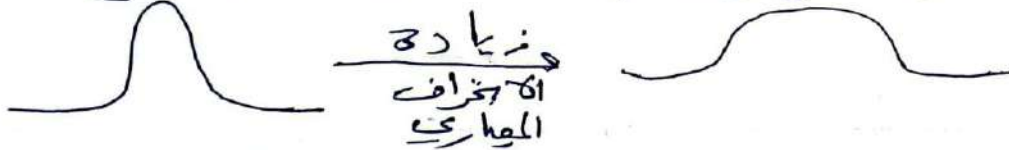 زيادة
الانحراف
المعياري